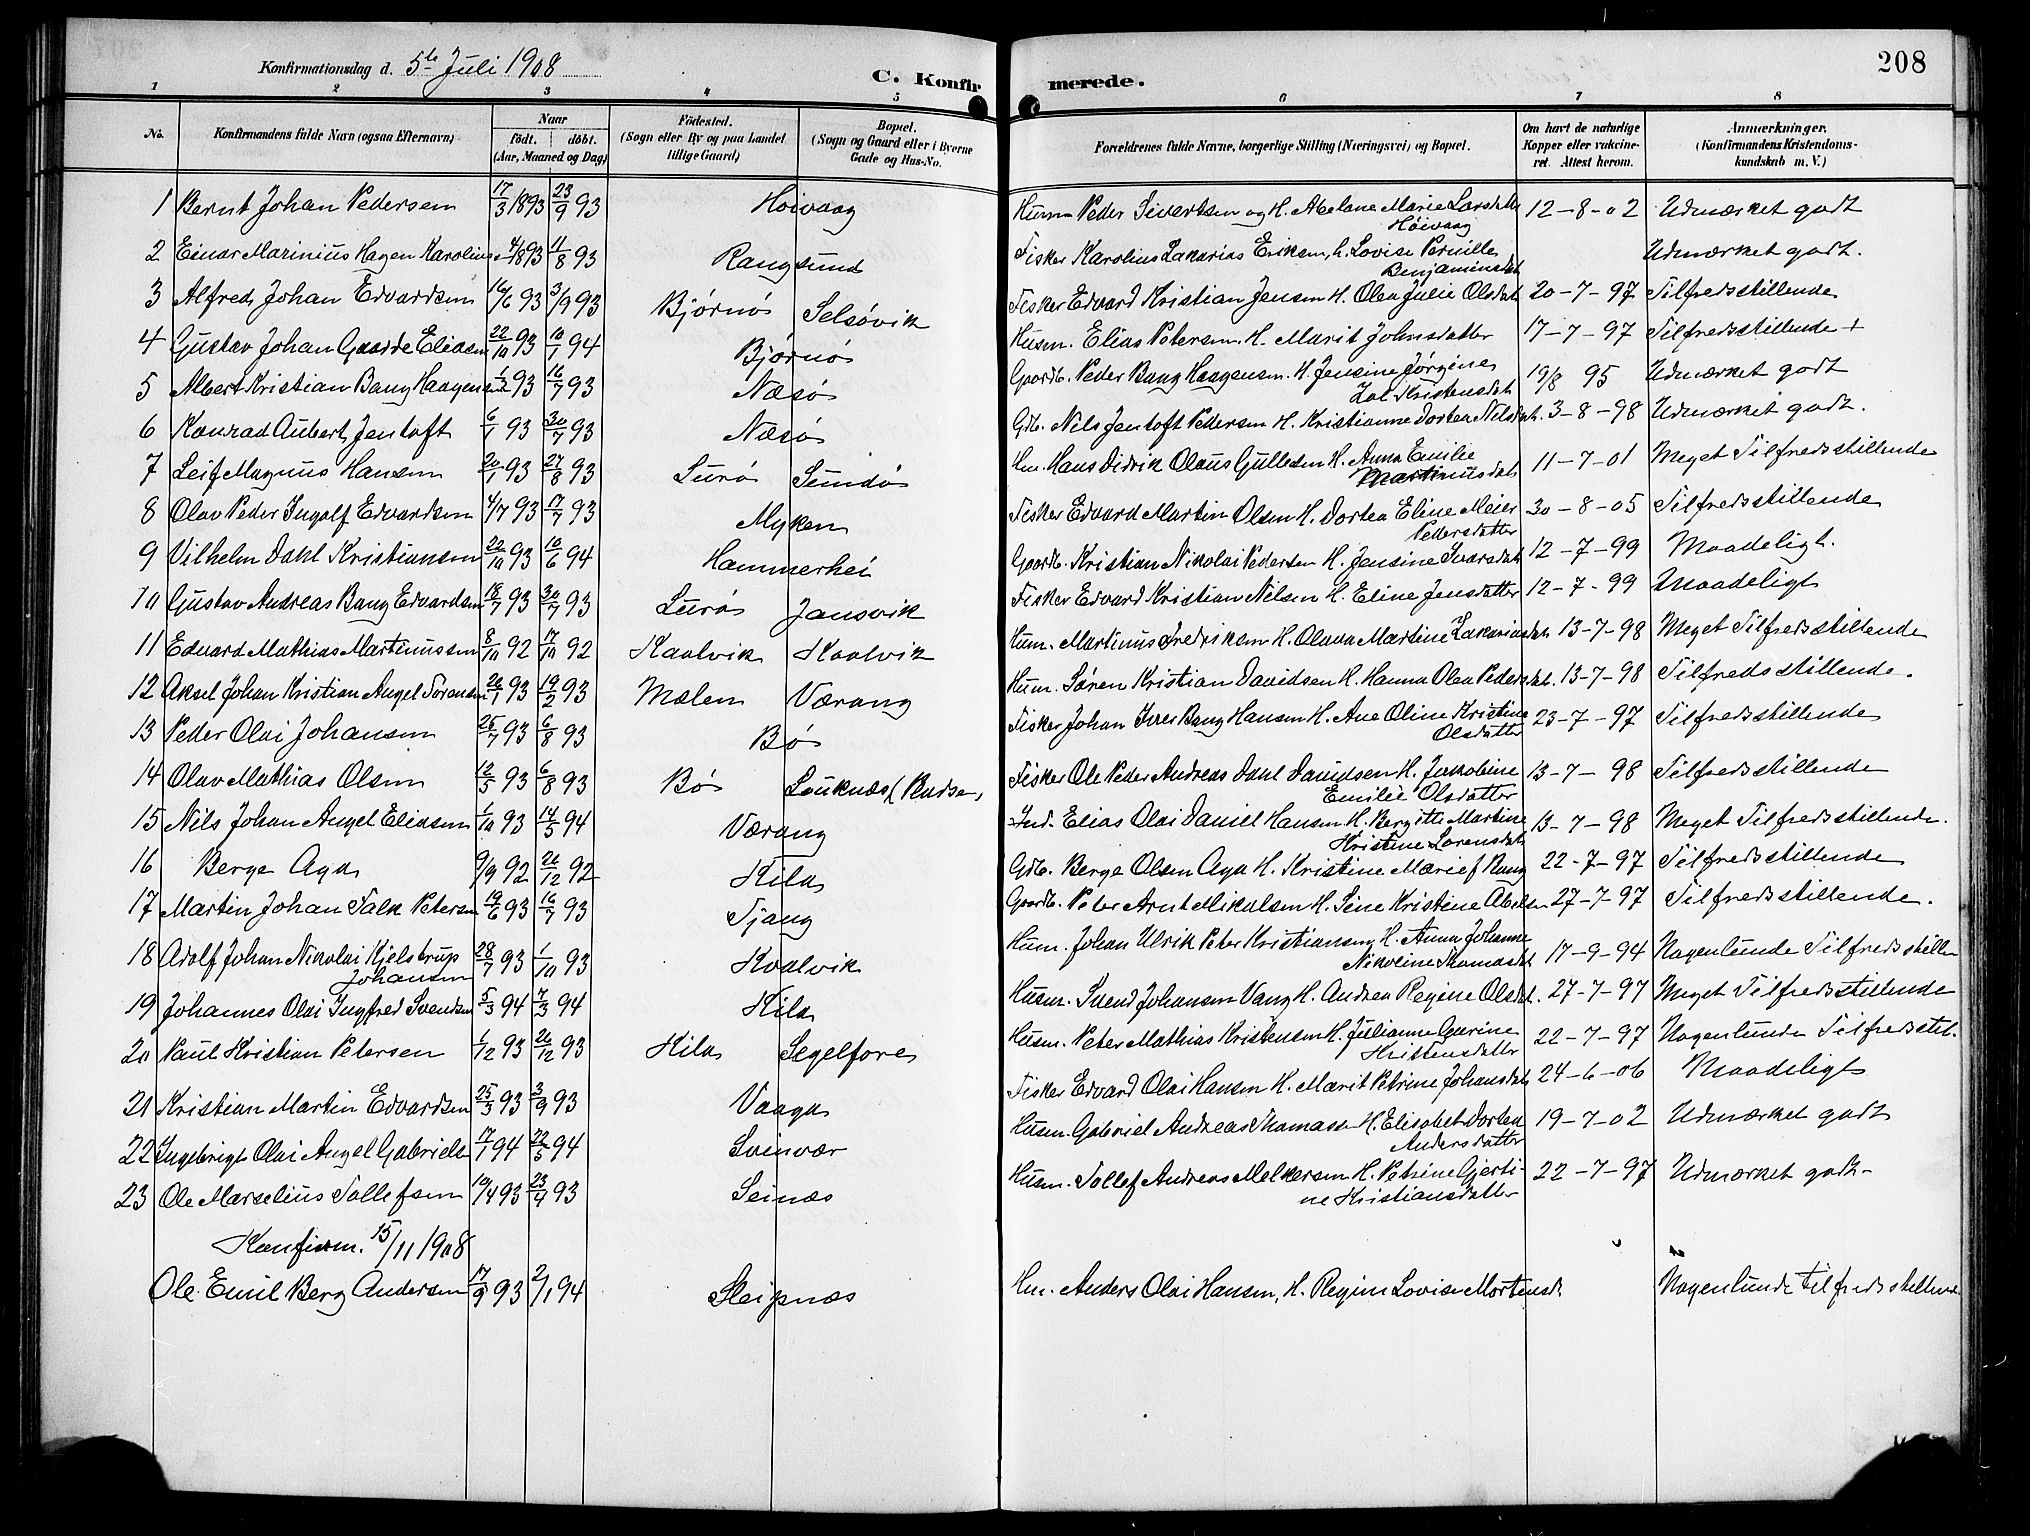 Konfirmationsdag d. 5te Juli 1908
C. Konfirmerede.
208
1 2 3 4 5 6 7 8
No.
Konfirmandens fulde Navn (ogsaa Efternavn)
Naar født. døbt. (Aar, Maaned og Dag)
Fødested. (Sogn eller By og paa Landet tillige Gaard)
Bopæl. (Sogn og Gaard eller i Byerne Gade og Hus-No.
Forældrenes fulde Navne, borgerlige Stilling (Næringsvei) og Bopæl.
Om havt de naturlige Kopper eller vakcineret. Attest herom.
Anmærkninger. (Konfirmandens Kristendomskundskab m. V.)
1 Bernt Johan Pedersen 17/3 1893 23/9 93 Høivaag Husm Peder Sivertsen og H. Abelone Marie Larsdatter Høivaag 12-8-02 Udmærket godt
2 Einar Marinius Hagen Karolius 4/1893 11/8 93 Rangsund Fisker Karolius Zakarias Eriksen, h. Lovise Pernille Benjaminsdat Udmærket godt.
3 Alfred Johan Edvardsen 16/6 93 3/9 93 Bjørnø Selsøvik Fisker Edvard Kristian Jensen H. Olea Julie Olsdat 20-7-97 Tilfredsstillende
4 Gustav Johan Gaarde Eliasen 22/10 93 10/1 94 Bjørnø Husm. Elias Petersen. H. Marit Johnsdatter 17-7-97 Tilfredsstillende +
5 Albert Kristian Bang Haagensen 1/2 93 16/7 93 Næsø Gaardb. Peder Bang Haagensen. H. Jensine Jørgine Zal Kristensdat 19/8 95 Udmærket godt
6 Konrad Aubert Jentoft 6/1 93 30/7 93 Næsø Gdb. Nils Jentoft Pedersen H. Kristianne Dortea Nilsdat. 3-8-98 Udmærket godt.
7 Leif Magnus Hansen 20/1 93 27/8 93 Lurø Sundø Hm. Hans Didrik Olaus Gullesen H. Anna Emilie Martinusdat 11-7-01 Meget Tilfredsstillende
8 Olav Peder Ingolf Edvardsen 4/7 93 17/7 93 Myken Fisker Edvard Martin Olsen H. Dortea Eline Meier Pedersdatter 30-8-05 Tilfredsstillende
9 Vilhelm Dahl Kristiansen 22/10 93 16/6 94 Hammerhei Gaardb. Kristian Nikolai Pedersen H. Jensine Ivarsdat 12-7-99 Maadeligt.
10 Gustav Andreas Bang Edvardsen 18/7 93 30/7 93 Lurø Jansvik Fisker Edvard Kristian Nilsen H. Eline Jensdatter 12-7-99 Maadeligt
11 Edvard Mathias Martinussen 8/10 92 17/10 92 Kaalvik Kaalvik Hum. Martinus Fredriksen H. Olava Martine Zakariasdat. 13-7-98 Meget Tilfredsstillende
12 Aksel Johan Kristian Angel Sørensen 26/1 93 19/2 93 Mælen Værang Hum. Søren Kristian Davidsen H. Hanna Olea Pedersdat. 13-7-98 Tilfredsstillende.
13 Peder Olai Johansen 25/7 93 6/8 93 Bø Fisker Johan Iver Bang Hansen H. Ane Oline Kristine Olsdatter 23-7-97 Tilfredsstillende
14 Olav Mathias Olsen 12/5 93 6/8 93 Bø Fisker Ole Peder Andreas Dahl Davidsen H. Jakobine Emilie Olsdatter 13-7-98 Tilfredsstillende
15 Nils Johan Angel Eliasen 1/10 93 14/5 94 Værang Ind. Elias Olai Daniel Hansen H. Bergitte Martine Kristine Lorensdat 13-7-98 Meget Tilfredsstillende.
16 Berge Aga 9/9 92 26/12 92 Kila Gdb. Berge Olsen Aga H. Kristine Marie f Bang 22-7-97 Tilfredsstillende
17 Martin Johan Falk Petersen 19/6 93 16/7 93 Tjang Gaardb. Peter Arnt Mikalsen H. Sine Kristine Abelsen 27-7-97 Tilfredsstillende.
18 Adolf Johan Nikolai Kjelstrup Johansen 28/7 93 1/10 93 Kvalvik Hum. Johan Ulrik Peter Kristiansen H. Anna Johanne Nikoline Thomasdat 17-9-94 Nogenlunde Tilfredsstillen
19 Johannes Olai Ingfred Svendsen 5/3 94 7/3 94 Kila Husm. Svend Johansen Vang H. Andrea Regine Olsdat. 27-7-97 Meget Tilfredsstillende
20 Paul Kristian Petersen 1/12 93 26/12 93 Kila Segelfore Husm. Peter Mathias Kristensen H. Julianne Gurine Kristensdatter 22-7-97 Nogenlunde Tilfredsstil.
21 Kristian Martin Edvardsen 25/3 93 3/9 93 Vaaga Fisker Edvard Olai Hansen H. Marit Petrine Johansdat 24-6-06 Maadeligt
22 Ingebrigt Olai Angel Gabrielse 17/1 94 22/5 94 Svinvær Husm. Gabriel Andreas Thomass H. Elisabet Dortea Andersdatter 19-7-02 Udmærket godt
23 Ole Marselius Tollefsen 10/4 93 23/4 93 Seinæs Husm. Tollef Andreas Melkersen H. Petrine Gjertine Kristiansdatter 22-7-97 Udmærket godt-
Konfirm. 15/11 1908
Ole Emil Berg Andersen 17/9 93 2/1 94 Sleipnæs Hm. Anders Olai Hansen, H. Regine Lovise Mortensd. Nogenlunde tilfredsstillende